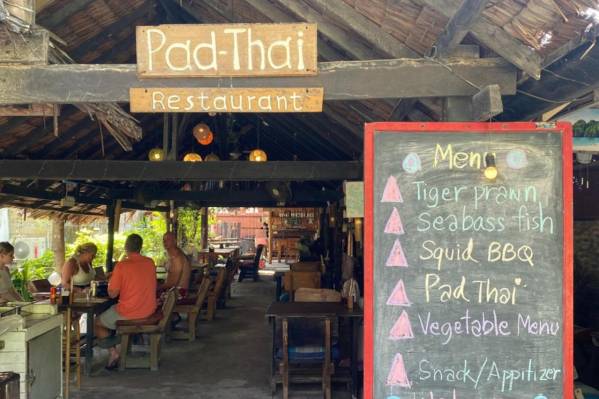 Pad-Thai
Restaurant
Menu
Tiger prawn
Seabass fish
Squid BBQ
Pad Thai
Vegetable Menu
Snack/Appitizer